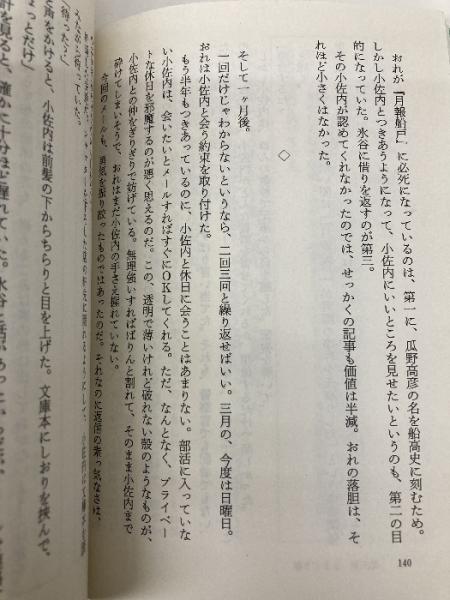 おれが『月報船戸』に必死になっているのは、第一に、瓜野高彦の名を船高史に刻むため。
しかし小佐内とつきあうようになって、小佐内にいいところを見せたいというのも、第二の目
的になっていた。氷谷に借りを返すのが第三。
その小佐内が認めてくれなかったのでは、せっかくの記事も価値は半減。おれの落胆は、そ
れほど小さくはなかった。
◇
そして一ヶ月後。
一回だけじゃわからないというなら、二回三回と繰り返せばいい。三月の、今度は日曜日。
おれは小佐内と会う約束を取り付けた。
もう半年もつきあっているのに、小佐内と休日に会うことはあまりない。部活に入っていな
い小佐内は、会いたいとメールすればすぐにOKしてくれる。ただ、なんとなく、プライベー
トな休日を邪魔するのが悪く思えるのだ。この、透明で薄いけれど破れない殻のようなものが、
小佐内との仲をぎりぎりで妨げている。無理強いすればぱりんと割れて、そのまま小佐内まで
砕けてしまいそうで、おれはまだ小佐内の手さえ握れていない。
今回のメールも、勇気を振り絞ったものではあったのだ。それなのに返信の素っ気なさは、
「待った?」
声をかけると、小佐内は前髪の下からちらりと目を上げた。文庫本にしおりを挟んで、
ょっとだけ」
計を見ると、確かに十分ほど遅れていた。
140